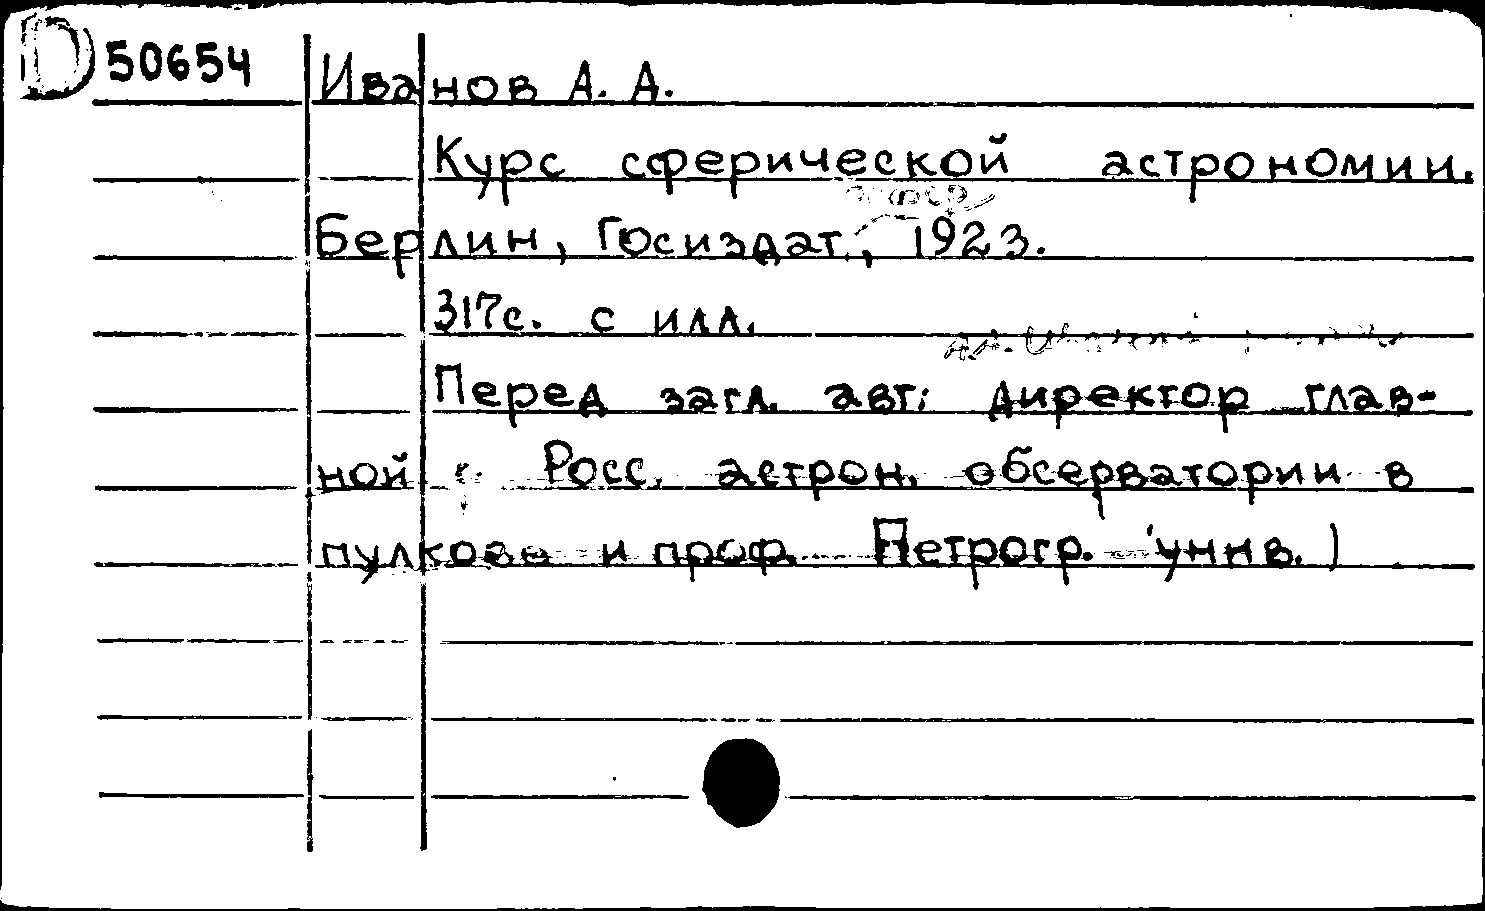 D 50654 Иванов А. А.
Курс сферической астрономии.
РСФСР
Берлин, Госиздат., 1923.
317с. с илл.
Перед загл. авт: директор глав-
ной Росс. астрон. обсерватории в
пулкове и проф. Петрогр. унив.)